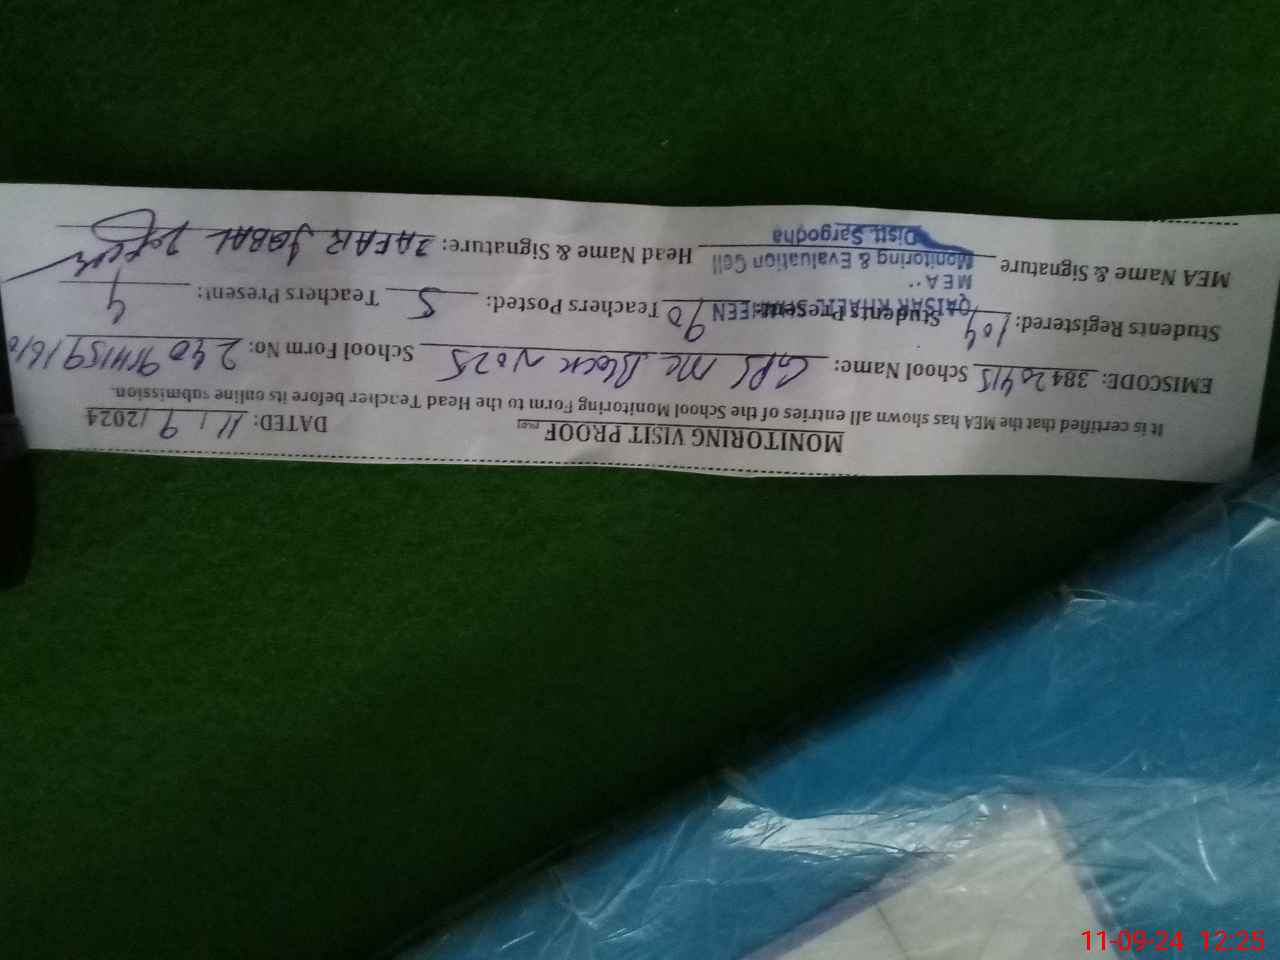 MONITORING VISIT PROOF
DATED: 11/9/2024
It is certified that the MEA has shown all entries of the School Monitoring Form to the Head Teacher before its online submission.
EMISCODE: 38420415 School Name: GPS MC Block No 25 School Form No:
Students Registered: 104 Students Present: 90 Teachers Posted: 5 Teachers Present: 4
MEA Name & Signature Head Name & Signature: ZAFAR IQBAL
QAISAR KHALIL
MEA
Monitoring & Evaluation Cell
Distt. Sargodha
11-09-24 12:25